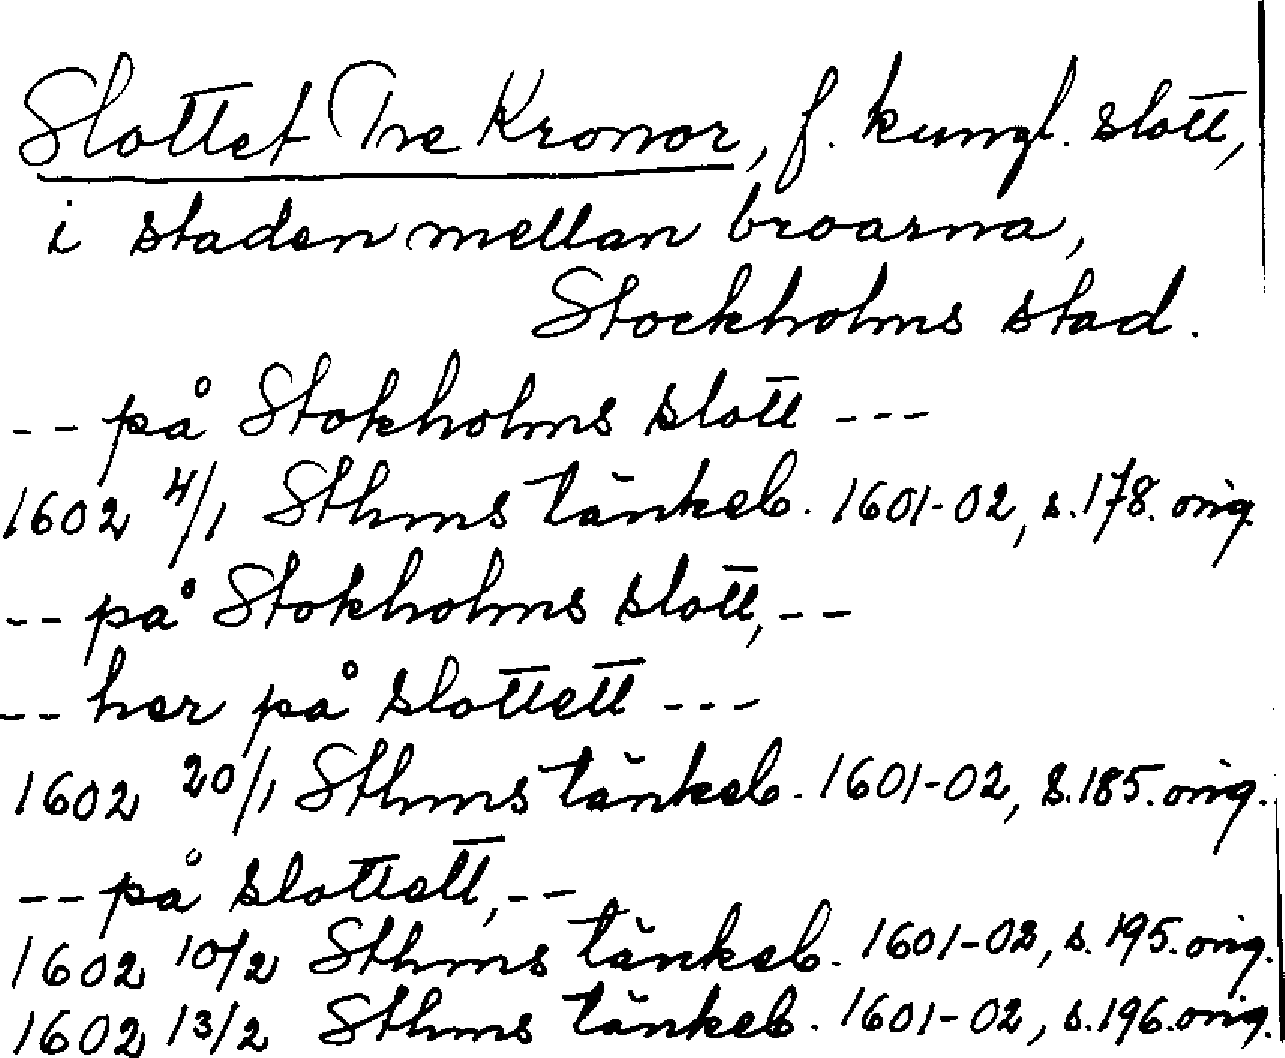 Slottet Tre Kronor, f. kungl. slott,
i staden mellan broarna,
Stockholms stad.
-- på Stokholms slott ---
1602 4/1 Sthms tänkeb. 1601-02, s. 178. orig.
-- på Stokholms slott, --
-- her på slottett ---
1602 20/1 Sthms tänkeb. 1601-02, s. 185. orig.
-- på slottett, --
1602 10/2 Sthms tänkeb. 1601-02, s. 195. orig.
1602 13/2 Sthms tänkeb. 1601-02, s. 196. orig.